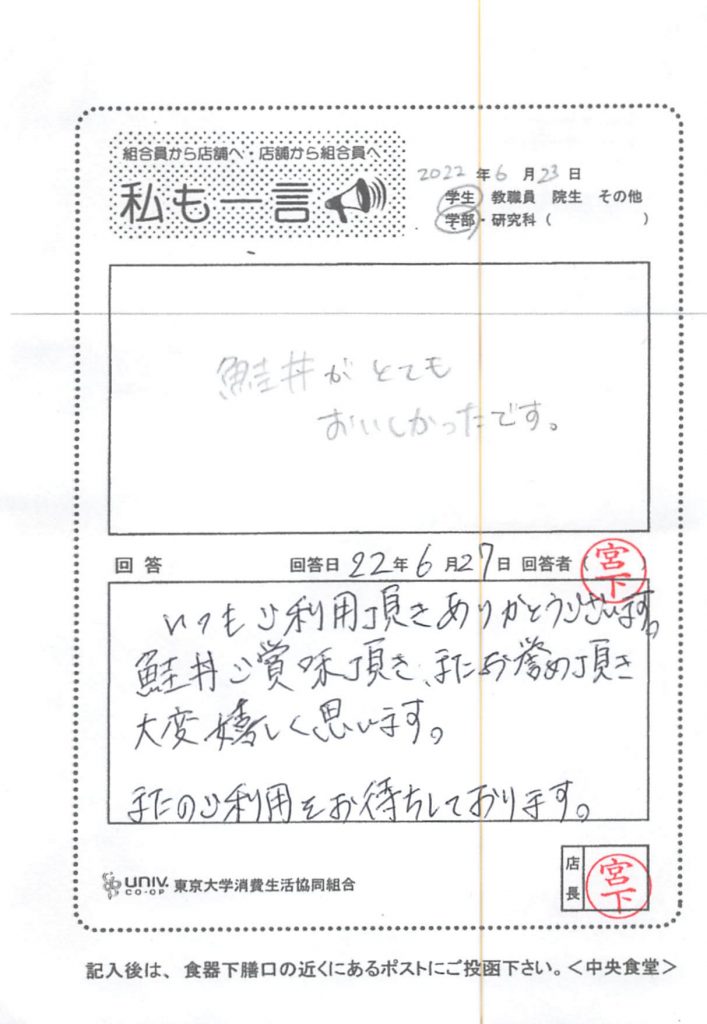 組合員から店舗へ・店舗から組合員へ
私も一言
2022年6月23日
学生 教職員 院生 その他
学部・研究科(　　　　)
鮭丼がとても
おいしかったです。
回答 回答日 22年6月27日 回答者(宮下
いつもご利用頂きありがとうございます。
鮭丼ご賞味頂き、またお誉め頂き
大変嬉しく思います。
またのご利用をお待ちしております。
店長 宮下
UNIV. CO-OP 東京大学消費生活協同組合
記入後は、食器下膳口の近くにあるポストにご投函下さい。<中央食堂>